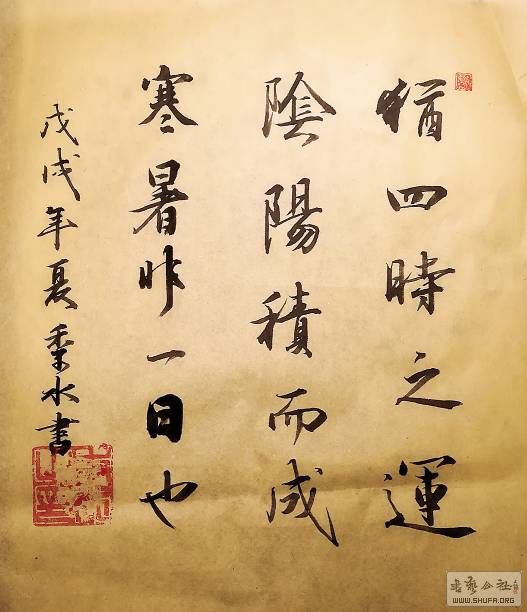 猶四時之運
陰陽積而成
寒暑非一日也
戊戌年夏季水書
書藝公社
WWW.SHUFA.ORG